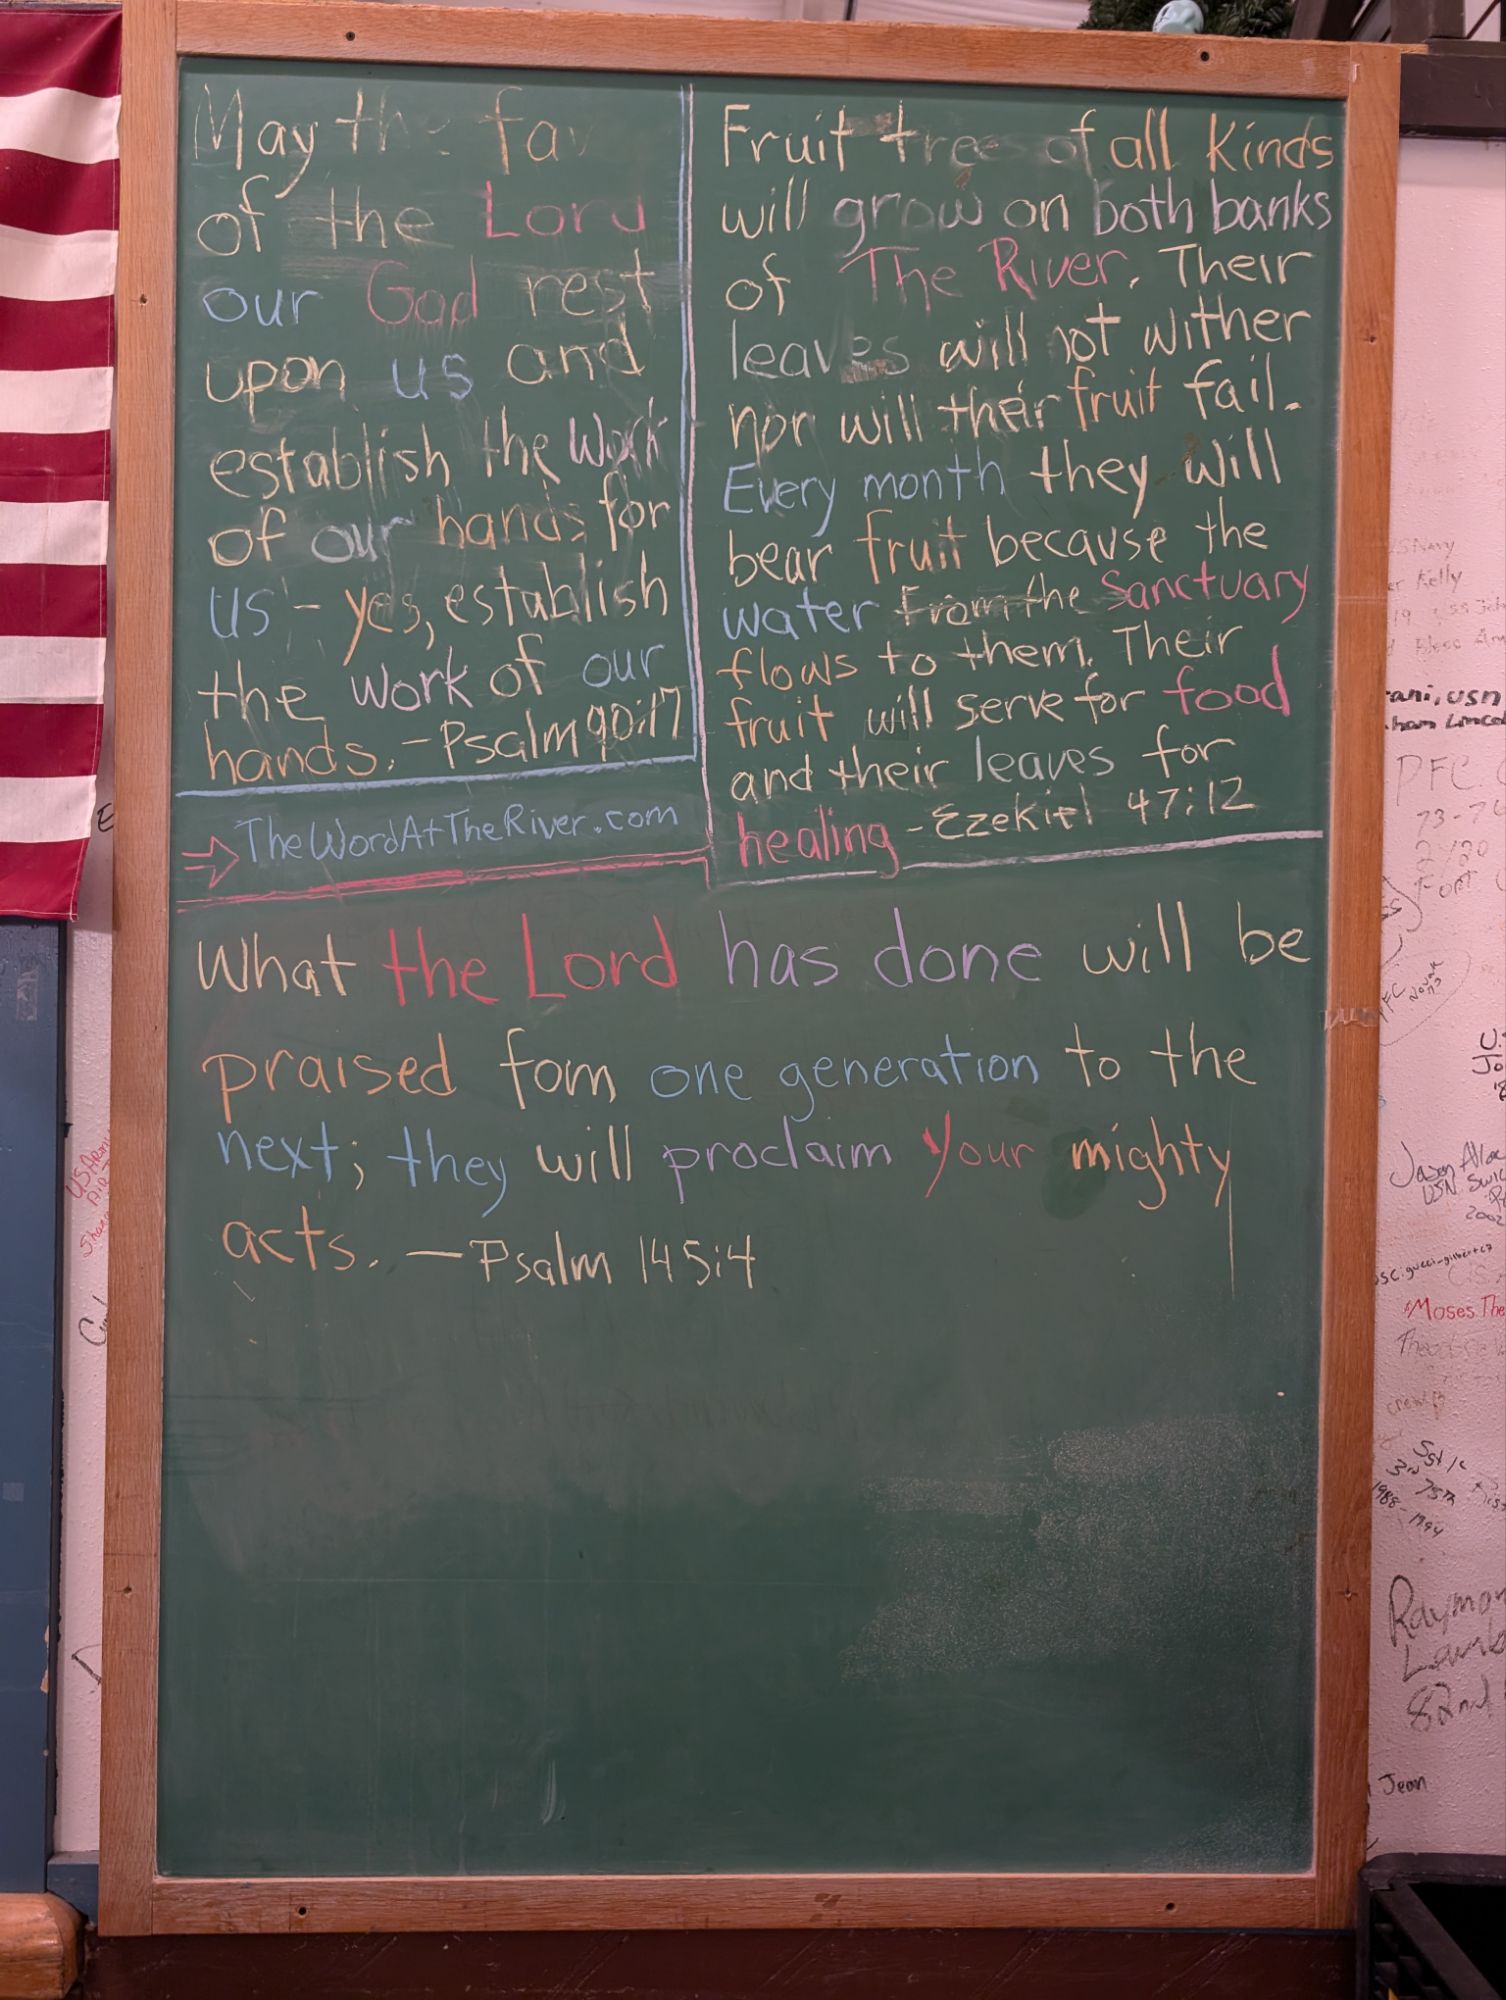 May the fav
of the Lord
our God rest
upon us and
establish the work
of our hands for
us - yes, establish
the work of our
hands. - Psalm 90:17
TheWordAtTheRiver.com
Fruit trees of all kinds
will grow on both banks
of The River. Their
leaves will not wither
nor will their fruit fail.
Every month they will
bear fruit because the
water from the Sanctuary
flows to them. Their
fruit will serve for food
and their leaves for
healing - Ezekiel 47:12
What the Lord has done will be
praised fom one generation to the
next; they will proclaim Your mighty
acts. - Psalm 145:4
USNavy
Kelly
ani, USN
PFC
73-7
Fort
PFC
Jason
USN
2002
Moses The
Sgt
3rd 75th
1988-1994
Raymon
Lamb
82nd
Jean